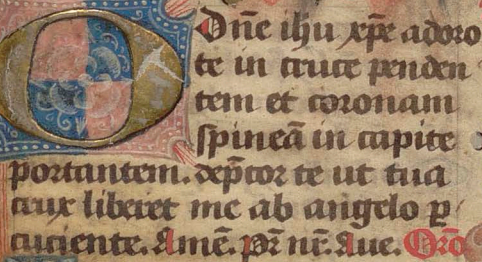 O Dn̄e ihu xp̄e adoro
te in cruce penden
tem et coronam
spineā in capite
portantem. dep̄cor te ut tua
crux liberet me ab angelo p̲
cuciente. Amē. Pr̄ nr̄. Aue. Or̄o